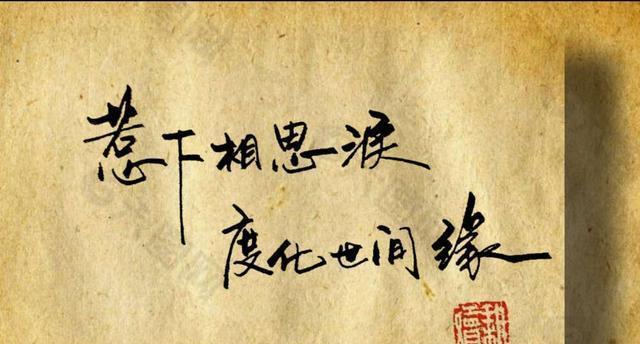 惹下相思淚
度化世间缘